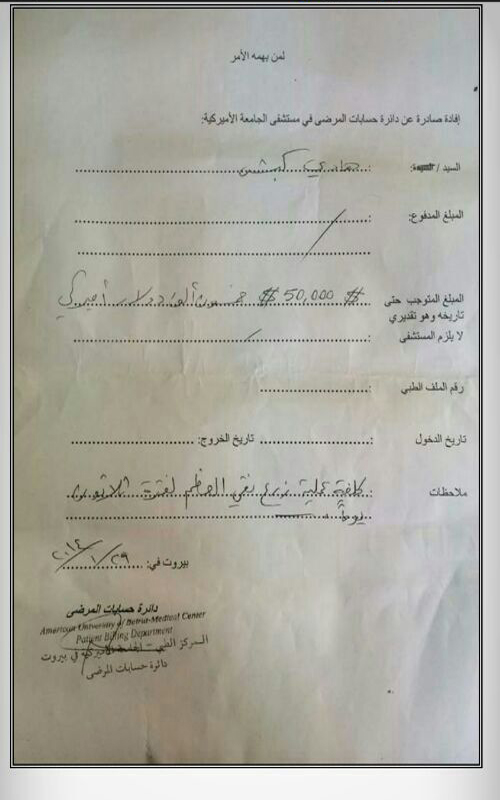 لمن يهمه الأمر
إفادة صادرة عن دائرة حسابات المرضى في مستشفى الجامعة الأميركية:
السيد / هادي كبشي
المبلغ المدفوع: /
المبلغ المتوجب حتى تاريخه وهو تقديري # 50,000 $ خمسون ألف دولار أميركي
لا يلزم المستشفى
رقم الملف الطبي :
تاريخ الدخول : تاريخ الخروج:
ملاحظات كلفة عملية زرع نقي العظم لفترة ثلاثون
يوماً
بيروت في: ٢٩ / ١ / ٢٠١٤
دائرة حسابات المرضى
American University of Beirut-Medical Center
Patient Billing Department
المركز الطبي - الجامعة الأميركية في بيروت
دائرة حسابات المرضى